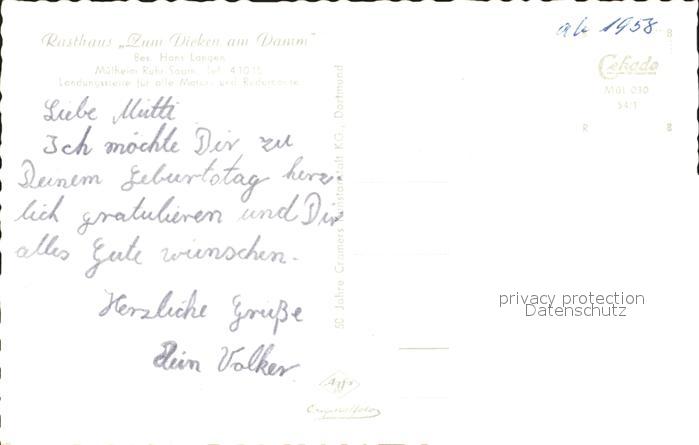 Rasthaus „Zum Dicken am Damm"
Bes. Hans Langen
Mülheim Ruhr-Saarn, Tel. 41015
Landungsstelle für alle Motor- und Ruderboote
ab 1958
Cekade
MÜL 030
54/1
R
B
B
Liebe Mutti
Ich möchte Dir zu
Deinem Geburtstag herz-
lich gratulieren und Dir
alles Gute wünschen.
Herzliche Grüße
Dein Volker
50 Jahre Cramers Kunstanstalt KG., Dortmund
Agfa
Originalfoto
privacy protection
Datenschutz